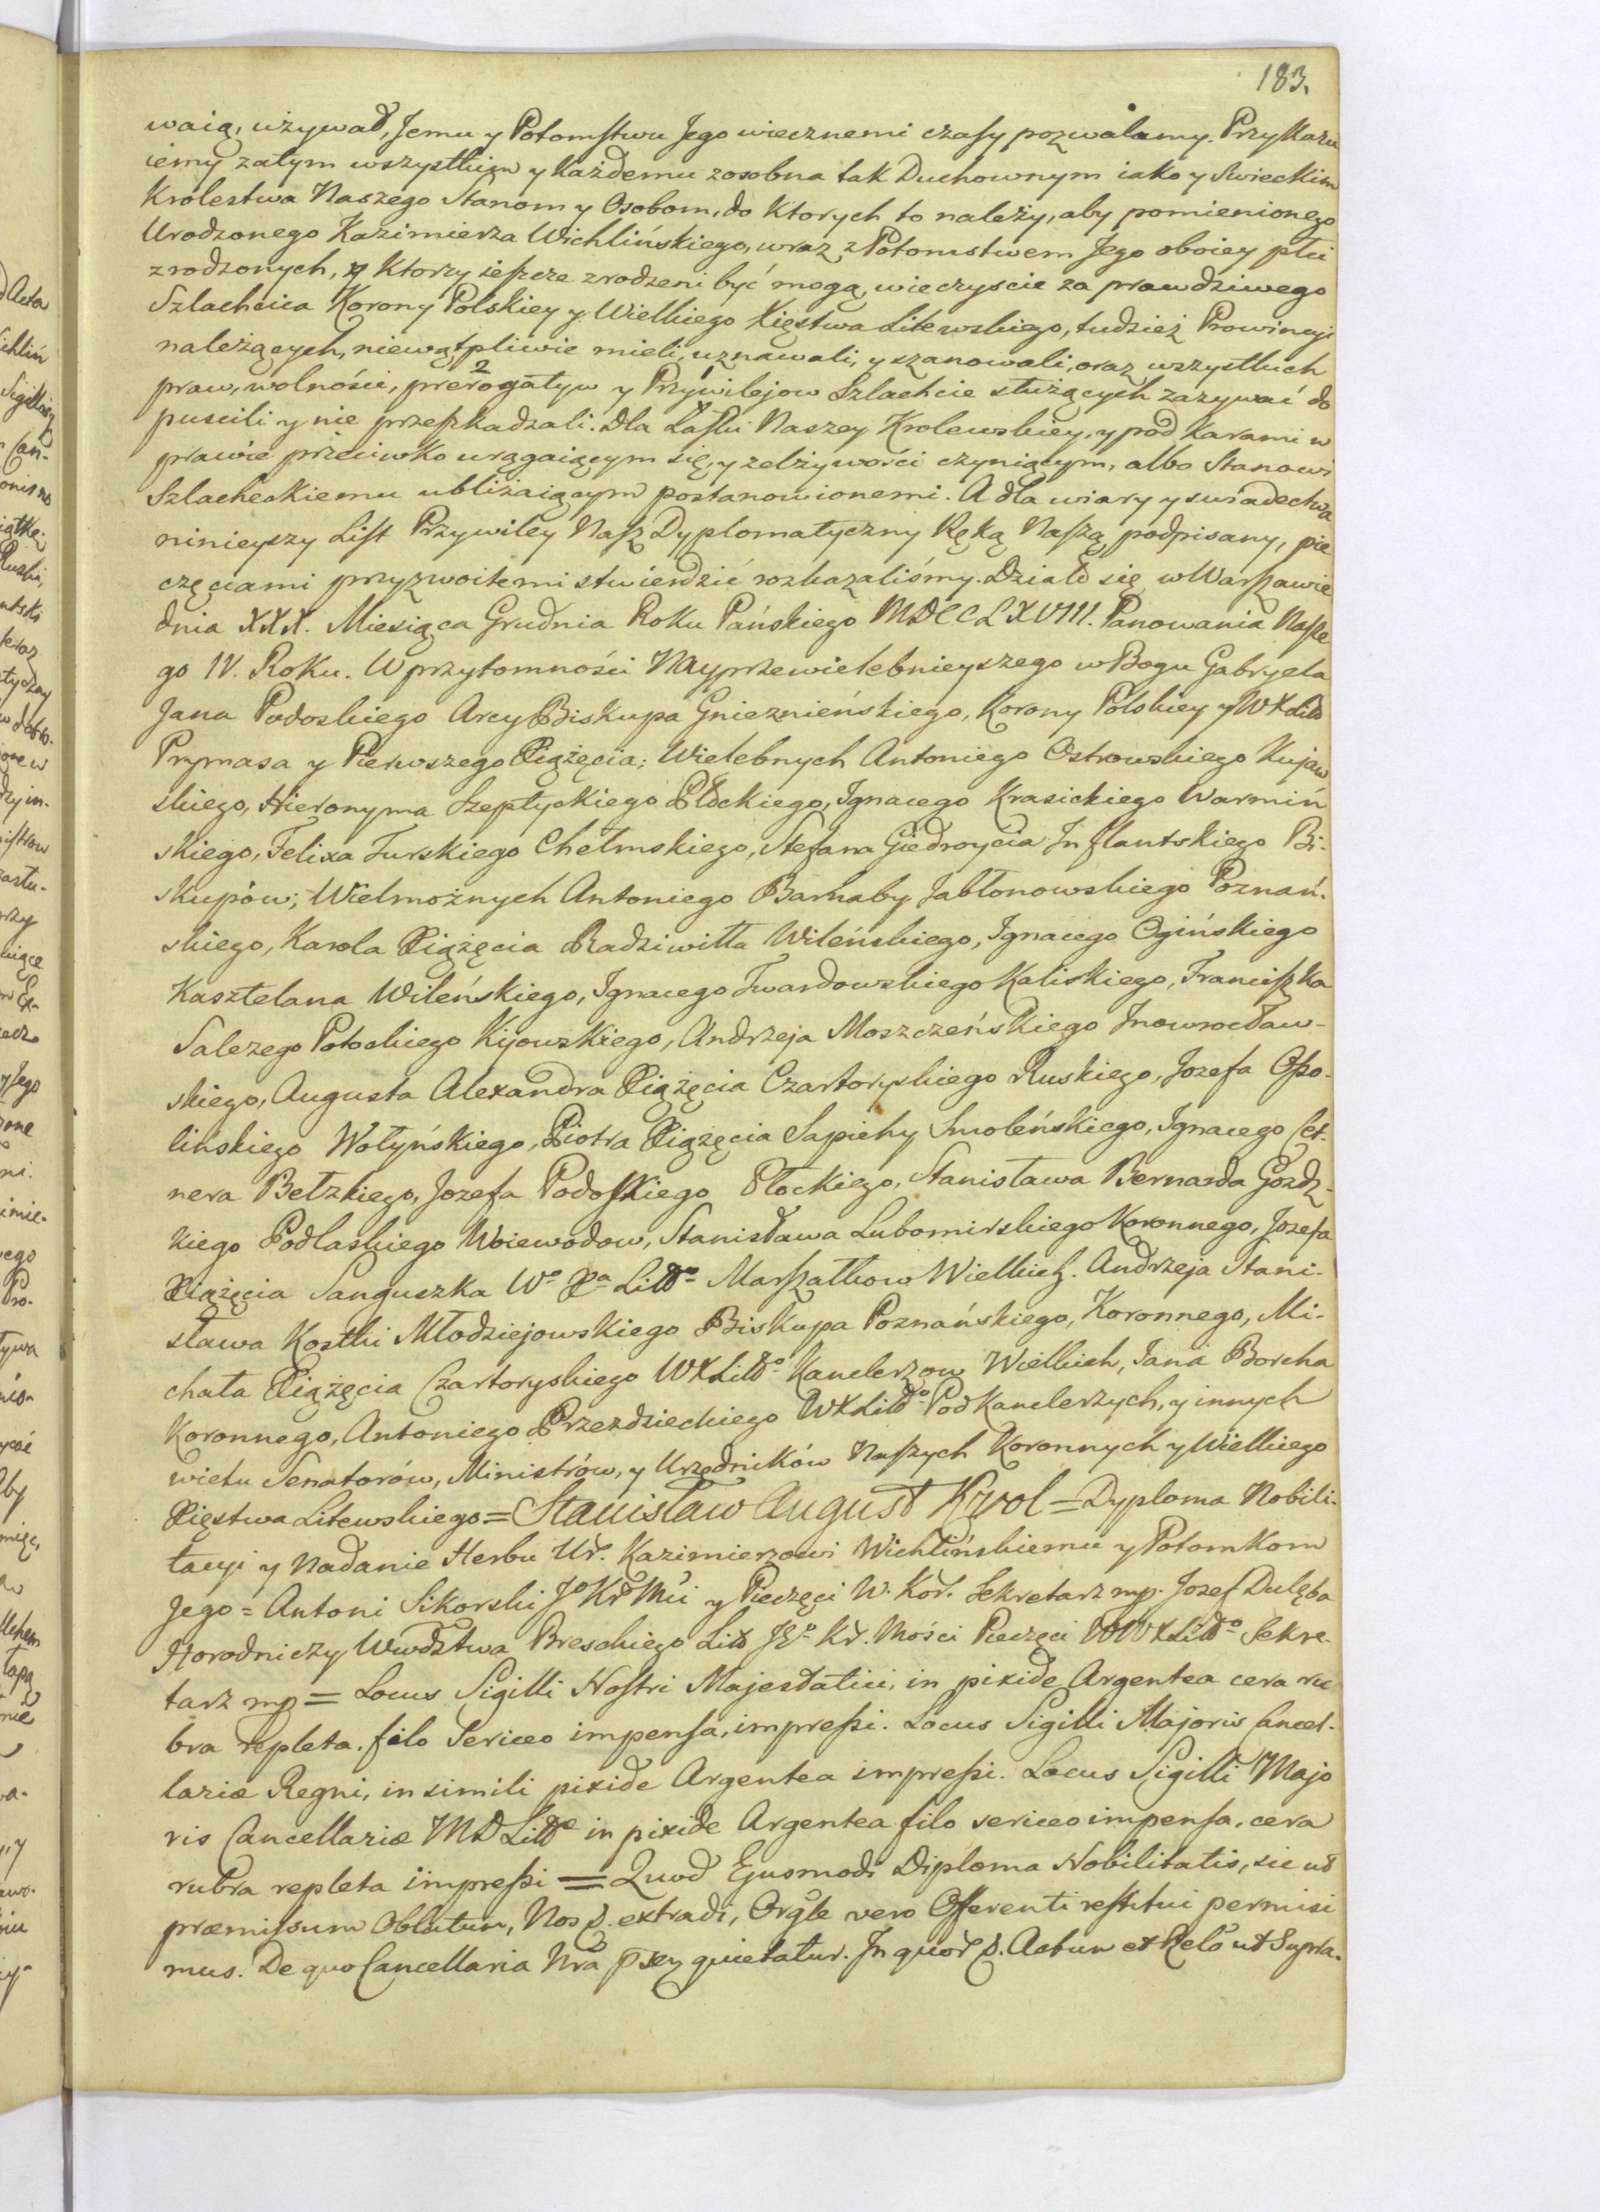 183.
waią, używać, Jemu y Potomstwu Jego wiecznemi czasy pozwalamy. Przykazu
iemy zatym wszystkim y każdemu zosobna tak Duchownym iako y Swieckim
Krolestwa Naszego Stanom y Osobom, do Ktorych to należy, aby pomienionego
Urodzonego Kazimierza Wichlińskiego, wraz z Potomstwem Jego oboiey płci
zrodzonych, y Ktorzy ieszcze zrodzeni być mogą, wieczyscie za prawdziwego
Szlachcica Korony Polskiey y Wielkiego Xięstwa Litewskiego, tudzież Prowincyi
należących, niewątpliwie mieli, uznawali, y szanowali, oraz wszystkich
praw, wolności, prerogatyw y Przywilejow Szlachcie służących zazywać do
puscili y nie przeszkadzali. Dla Łaski Naszey Krolewskiey, y pod Karami w
prawie przeciwko uragaiącym się, y zelżywości czyniącym, albo Stanowi
Szlacheckiemu ubliżaiącym postanowionemi. A dla wiary y swiadectwa
ninieyszy List Przywiley Nasz Dyplomatyczny Ręką Naszą podpisany, pie
częciami przyzwoitemi stwierdzić rozkazaliśmy. Działo się w Warszawie
dnia XXX. Miesiąca Grudnia Roku Pańskiego MDCCLXVIII. Panowania Nasze
go IV. Roku. W przytomności Nayprzewielebnieyszego w Bogu Gabryela
Jana Podoskiego Arcy Biskupa Gnieznieńskiego, Korony Polskiey y WXLitt
Prymasa y Pierwszego Xiążęcia; Wielebnych Antoniego Ostrowskiego Kujaw
skiego, Hieronyma Szeptyckiego Płockiego, Ignacego Krasickiego Warmiń
skiego, Felixa Turskiego Chełmskiego, Stefana Giedroycia Inflantskiego Bi-
skupów; Wielmożnych Antoniego Barnaby Jabłonowskiego Poznań-
skiego, Karola Xiążęcia Radziwiłła Wileńskiego, Ignacego Ogińskiego
Kasztelana Wileńskiego, Ignacego Twardowskiego Kaliskiego, Franciszka
Salezego Potockiego Kijowskiego, Andrzeja Moszczeńskiego Inowrocław-
skiego, Augusta Alexandra Xiążęcia Czartoryskiego Ruskiego, Jozefa Osso-
linskiego Wołyńskiego, Piotra Xiążęcia Sapiehy Smoleńskiego, Ignacego Cet-
nera Bełzkiego, Jozefa Podoskiego Płockiego, Stanisława Bernarda Gozdz-
kiego Podlaskiego Woiewodow, Stanisława Lubomirskiego Koronnego, Jozefa
Xiążęcia Sanguszka Wo Xa Litto Marszałkow Wielkich. Andrzeja Stani-
sława Kostki Młodziejowskiego Biskupa Poznańskiego, Koronnego, Mi-
chała Xiążęcia Czartoryskiego WXLitto Kanclerzow Wielkich, Jana Borcha
Koronnego, Antoniego Przezdzieckiego WXLitto Podkanclerzych, y innych
wielu Senatorów, Ministrów, y Urzędników Naszych Koronnych y Wielkiego
Xięstwa Litewskiego = Stanisław August Krol = Dyploma Nobili-
tacyi y Nadanie Herbu Ur. Kazimierzowi Wichlińskiemu y Potomkom
Jego = Antoni Sikorski Jo Kr Mci y Pieczęci W. Kor. Sekretarz mp. Jozef Dulęba
Horodniczy Wwdztwa Bresckiego Litt JKo Kr. Mości Pieczęci WWXLitto Sekre-
tarz mp = Locus Sigilli Nostri Majestatici, in pixide Argentea cera ru
bra repleta. filo Sericeo impensa, impressi. Locus Sigilli Majoris Cancel-
lariæ Regni, in simili pixide Argentea impressi. Locus Sigilli Majo
ris Cancellariæ MDLitt in pixide Argentea filo sericeo impensa, cera
rubra repleta impressi = Quod Ejusmodi Diploma Nobilitatis, sic ut
præmissum Oblatum, Nos extradi, Orgle vero Offerenti restitui permisi
mus. De quo Cancellaria Nra quietatur. In quor Actum et Relo ut Supra.